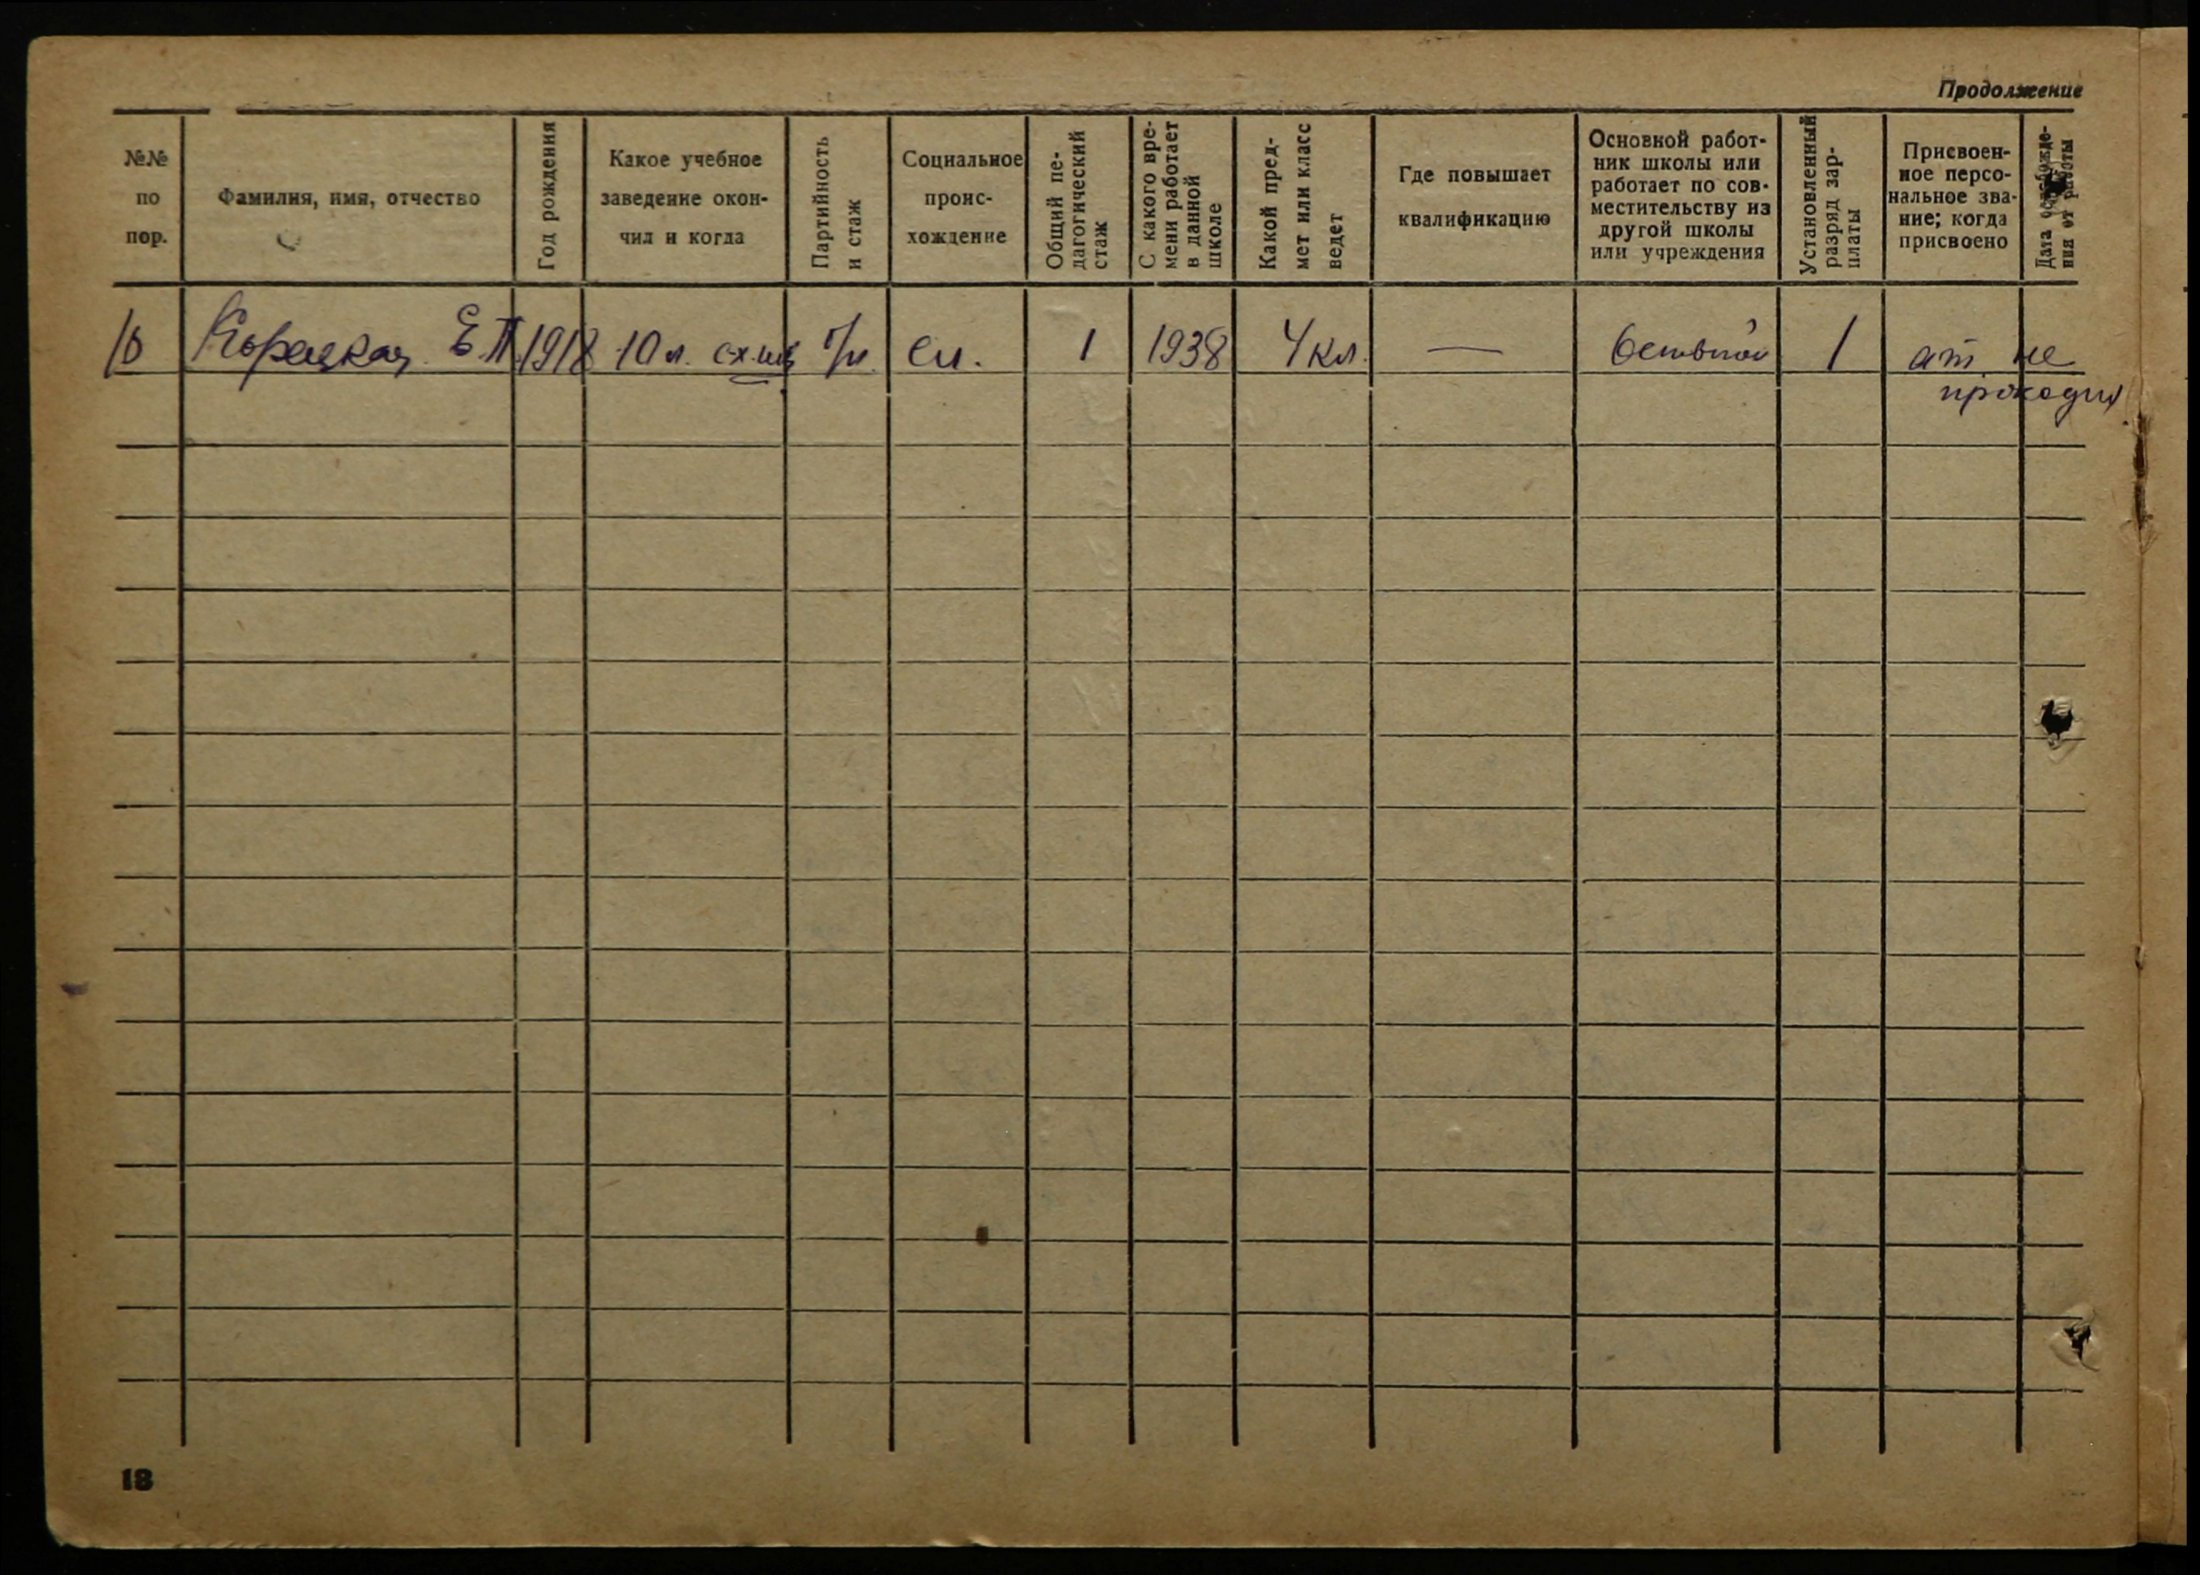 Продолжение
№№
по
пор.
Фамилия, имя, отчество
Год рождения
Какое учебное
заведение окон-
чил и когда
Партийность
и стаж
Социальное
проис-
хождение
Общий пе-
дагогический
стаж
С какого вре-
мени работает
в данной
школе
Какой пред-
мет или класс
ведет
Где повышает
квалификацию
Основной работ-
ник школы или
работает по сов-
местительству из
другой школы
или учреждения
Установленный
разряд зар-
платы
Присвоен-
ное персо-
нальное зва-
ние; когда
присвоено
Дата освобожде-
ния от работы
Е.П. 1918 10 л. 1 1938 4 кл. — 1 ат. не
проходил
18